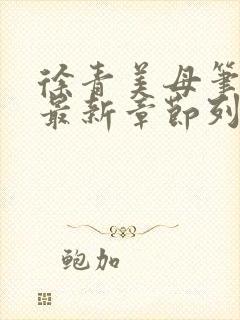 徐青美母笔
最新章节列
鲍加